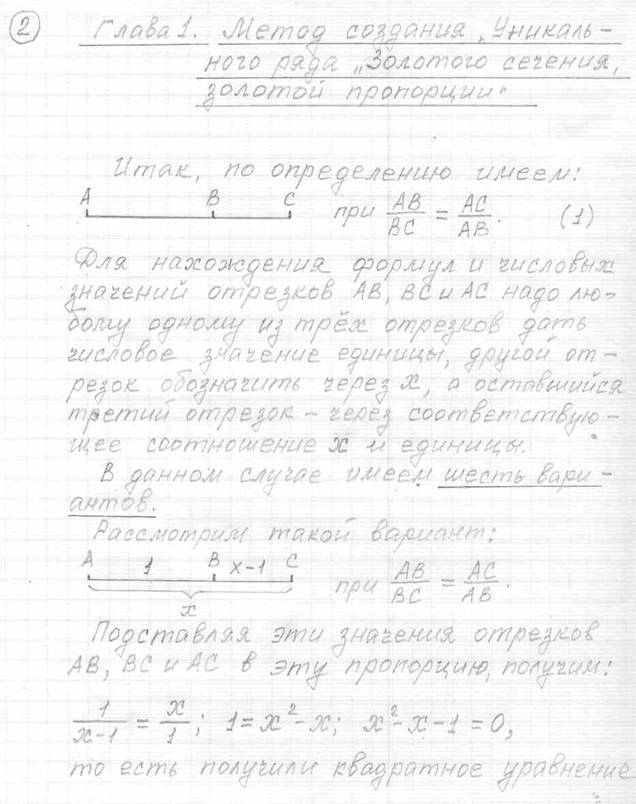 2 Глава 1. Метод создания „Уникаль-
ного ряда „Золотого сечения,
золотой пропорции"
Итак, по определению имеем:
A B C при AB/BC = AC/AB. (1)
Для нахождения формул и числовых
значений отрезков AB, BC и AC надо лю-
бому одному из трёх отрезков дать
числовое значение единицы, другой от-
резок обозначить через X, а оставшийся
третий отрезок - через соответствую-
щее соотношение X и единицы.
В данном случае имеем шесть вари-
антов.
Рассмотрим такой вариант:
A 1 B X-1 C при AB/BC = AC/AB.
X
Подставляя эти значения отрезков
AB, BC и AC в эту пропорцию, получим:
1/X-1 = X/1; 1=X²-X; X²-X-1=0,
то есть получили квадратное уравнение